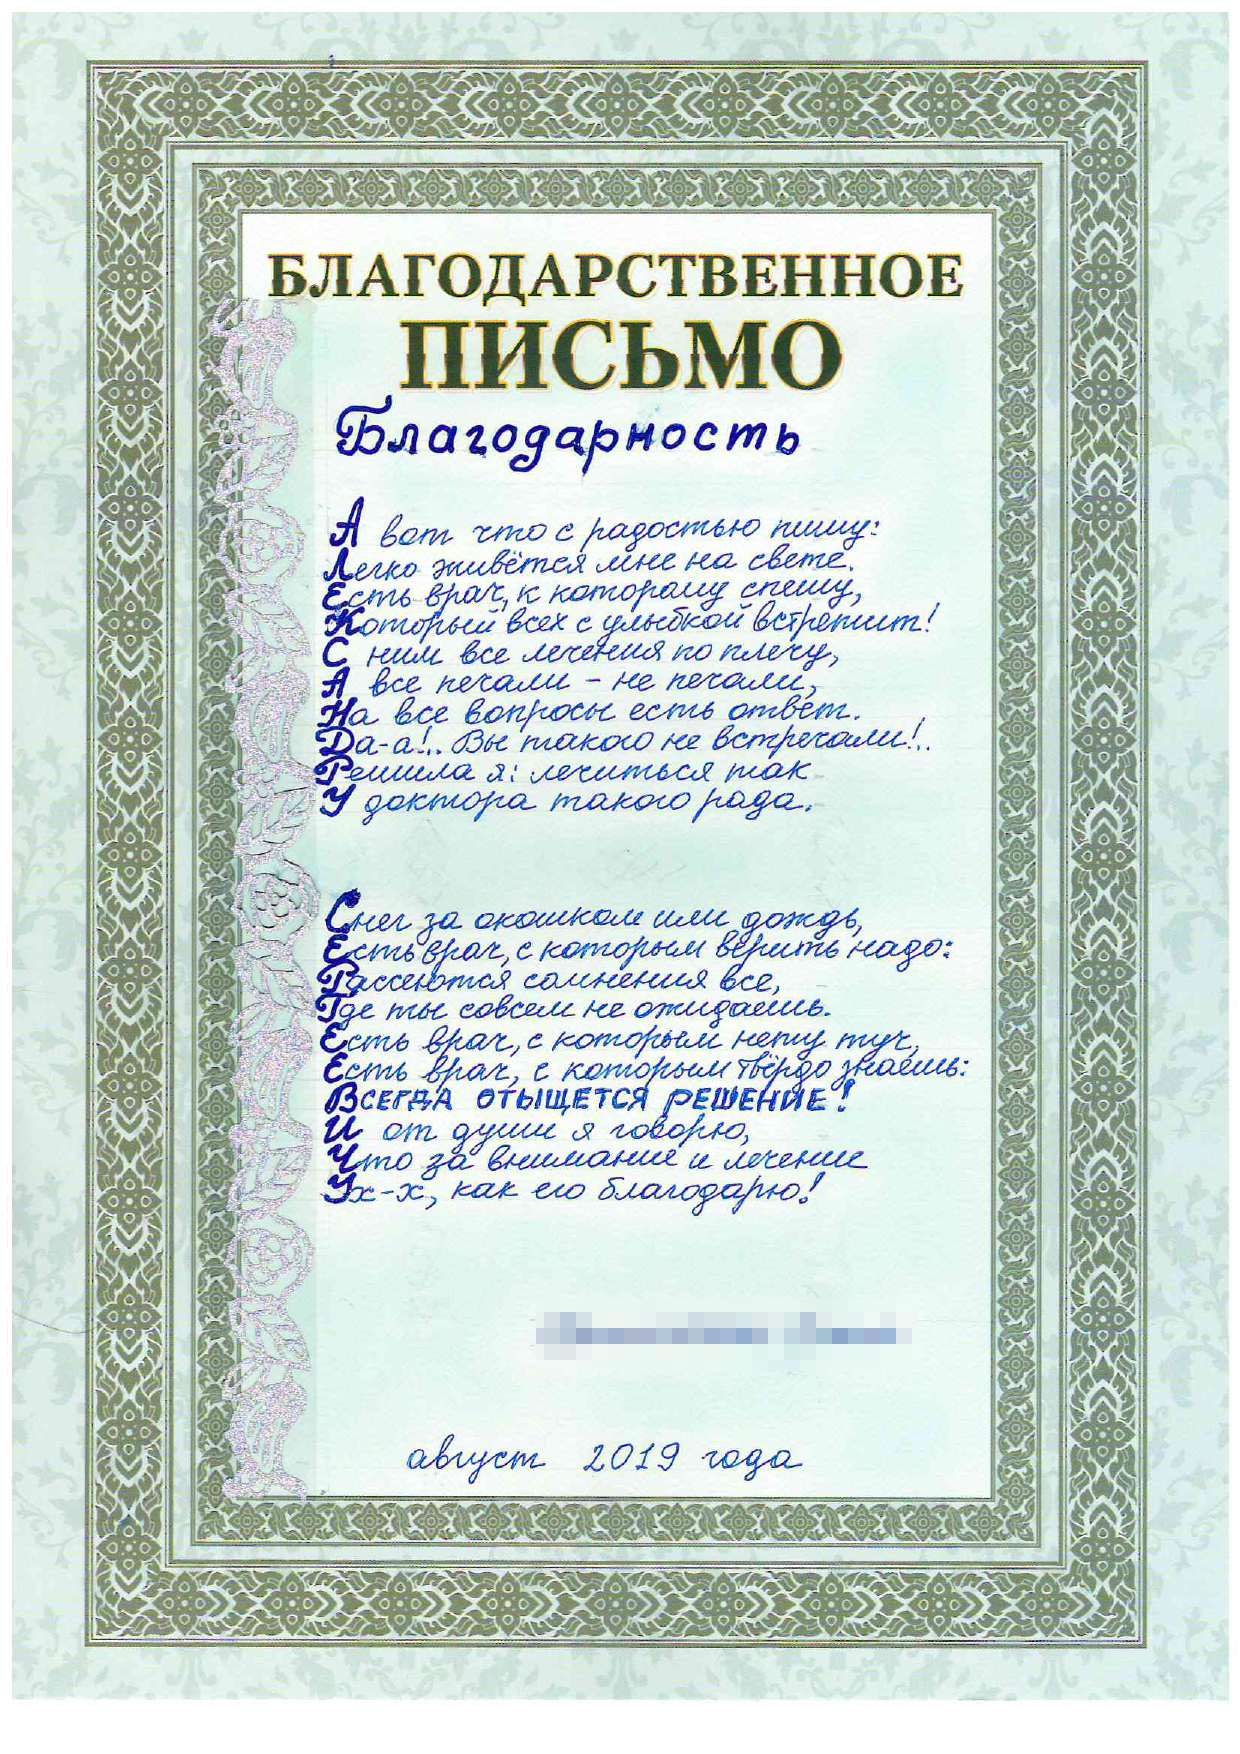 БЛАГОДАРСТВЕННОЕ
ПИСЬМО
Благодарность
А вот что с радостью пишу:
Легко живётся мне на свете.
Есть врач, к которому спешу,
Который всех с улыбкой встретит!
С ним все лечения по плечу,
А все печали - не печали,
На все вопросы есть ответ.
Да-а!.. Вы такого не встречали!..
Решила я: лечиться так
У доктора такого рада.
Снег за окошком или дождь,
Есть врач, с которым верить надо:
Рассеются сомнения все,
Где ты совсем не ожидаешь.
Есть врач, с которым нету туч,
Есть врач, с которым твёрдо знаешь:
ВСЕГДА ОТЫЩЕТСЯ РЕШЕНИЕ!
И от души я говорю,
Что за внимание и лечение
Ух-х, как его благодарю!
август 2019 года